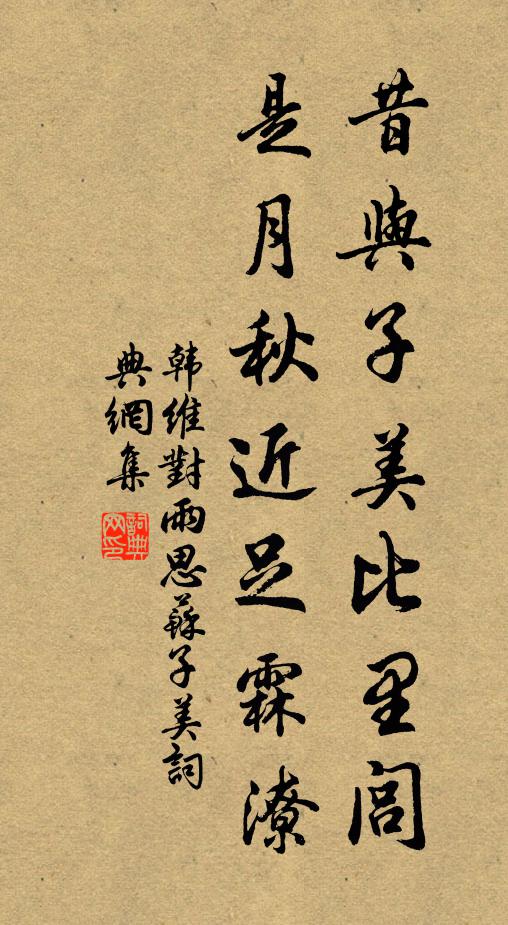 昔與子美比里閭
是月秋近足霖潦
韩維對雨思蘇子美詞
典網集
詞典
网印